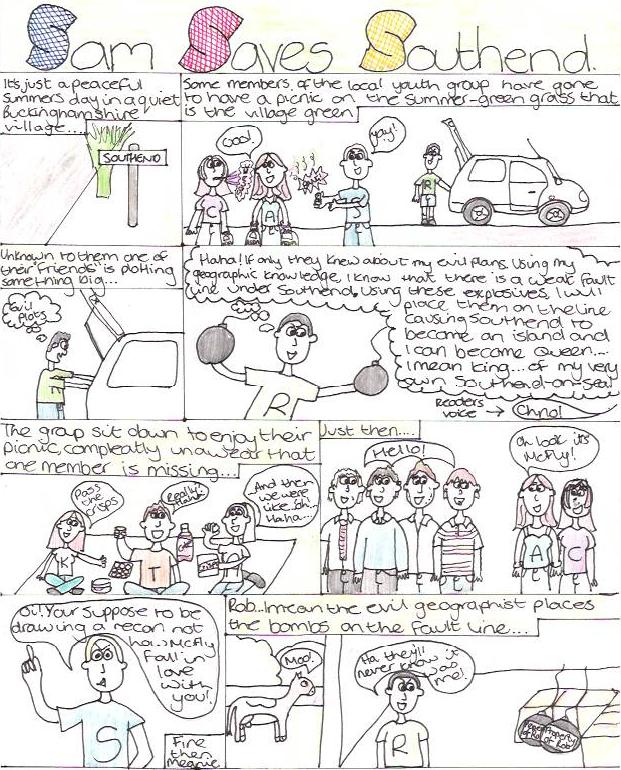 Sam Saves Southend.
It's just a peaceful
summers day in a quiet
Buckinghamshire
village....
SOUTHEND
Some members, of the local youth group have gone
to have a picnic on the summer-green grass that
is the village green
Cool!
yay!
C
A
S
R
Unknown to them one of
their "friends" is plotting
something big...
Evil
plots
Haha! If only they knew about my evil plans. Using my
geographic knowledge, I know that there is a weak fault
line under Southend. Using these explosives, I will
place them on the line
causing Southend to
become an island and
I can become Queen....
I mean king... of my very
own Southend-on-sea!
R
Readers
voice →
Ohno!
The group sit down to enjoy their
picnic, compleatly unawear that
one member is missing...
Pass
the
crisps
Really?
And then
we were
like 'oh..
Haha...
K
T
Just then....
Hello!
Oh look it's
McFly!
A
C
Oi! Your suppose to be
drawing a recon not
how McFly
fall in
love
with
you!
S
Fine
then
meanie
Rob...I mean the evil geographist places
the bombs on the fault line....
Moo!
Ha they'll
never know it
was
me!
R
Property
of Rob
Property
of Rob